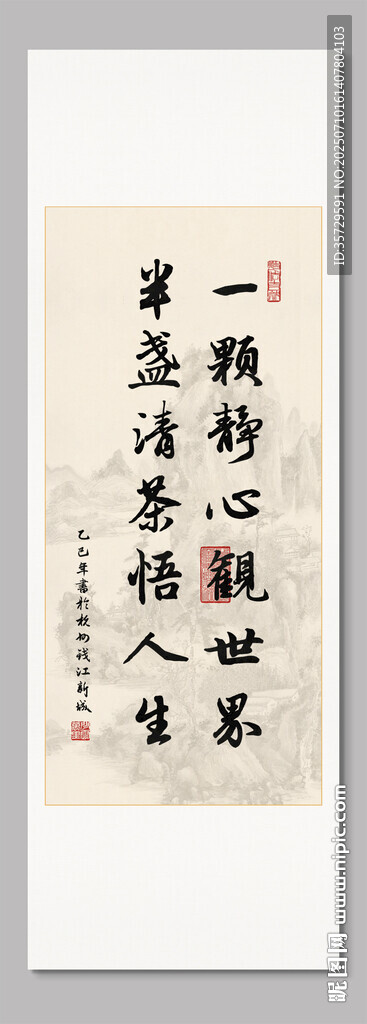 一颗静心觀世界
半盏清茶悟人生
乙巳年書於杭州钱江新城
ID:35729591 NO:20250710161407804103
昵图网 www.nipic.com